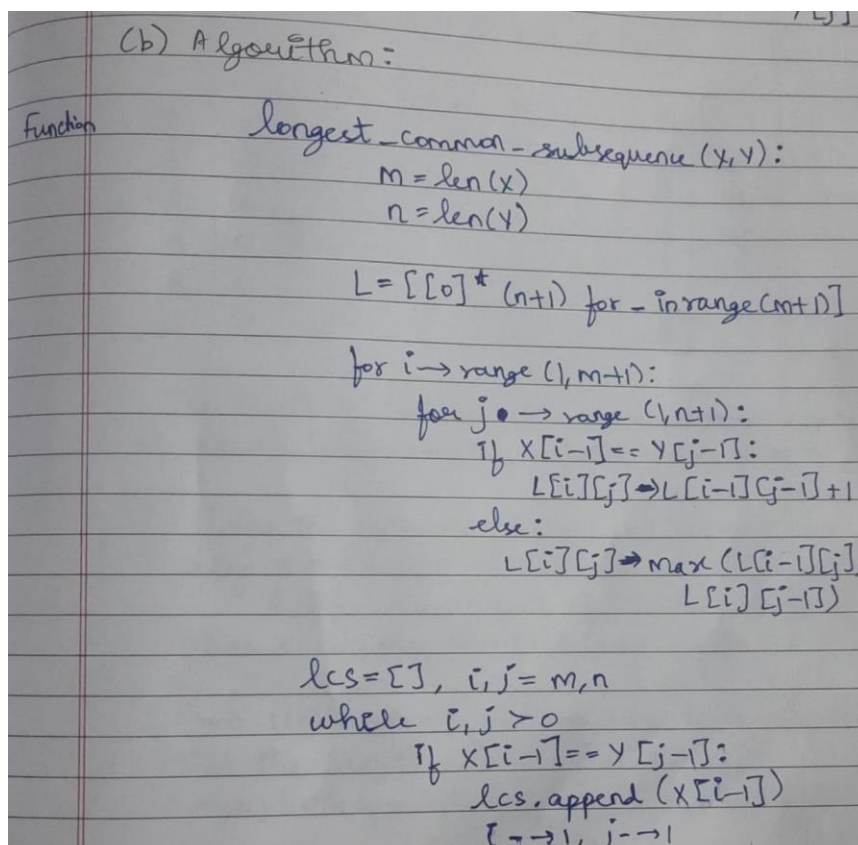 (b) Algorithm:
Function longest_common_subsequence (X, Y):
m = len(X)
n = len(Y)
L = [[0]* (n+1) for _ in range(m+1)]
for i → range (1, m+1):
for j → range (1, n+1):
If X[i-1] == Y[j-1]:
L[i][j] → L[i-1][j-1] + 1
else:
L[i][j] → max (L[i-1][j]
L[i][j-1])
lcs = [], i, j = m, n
while i, j > 0
If X[i-1] == Y[j-1]:
lcs.append (X[i-1])